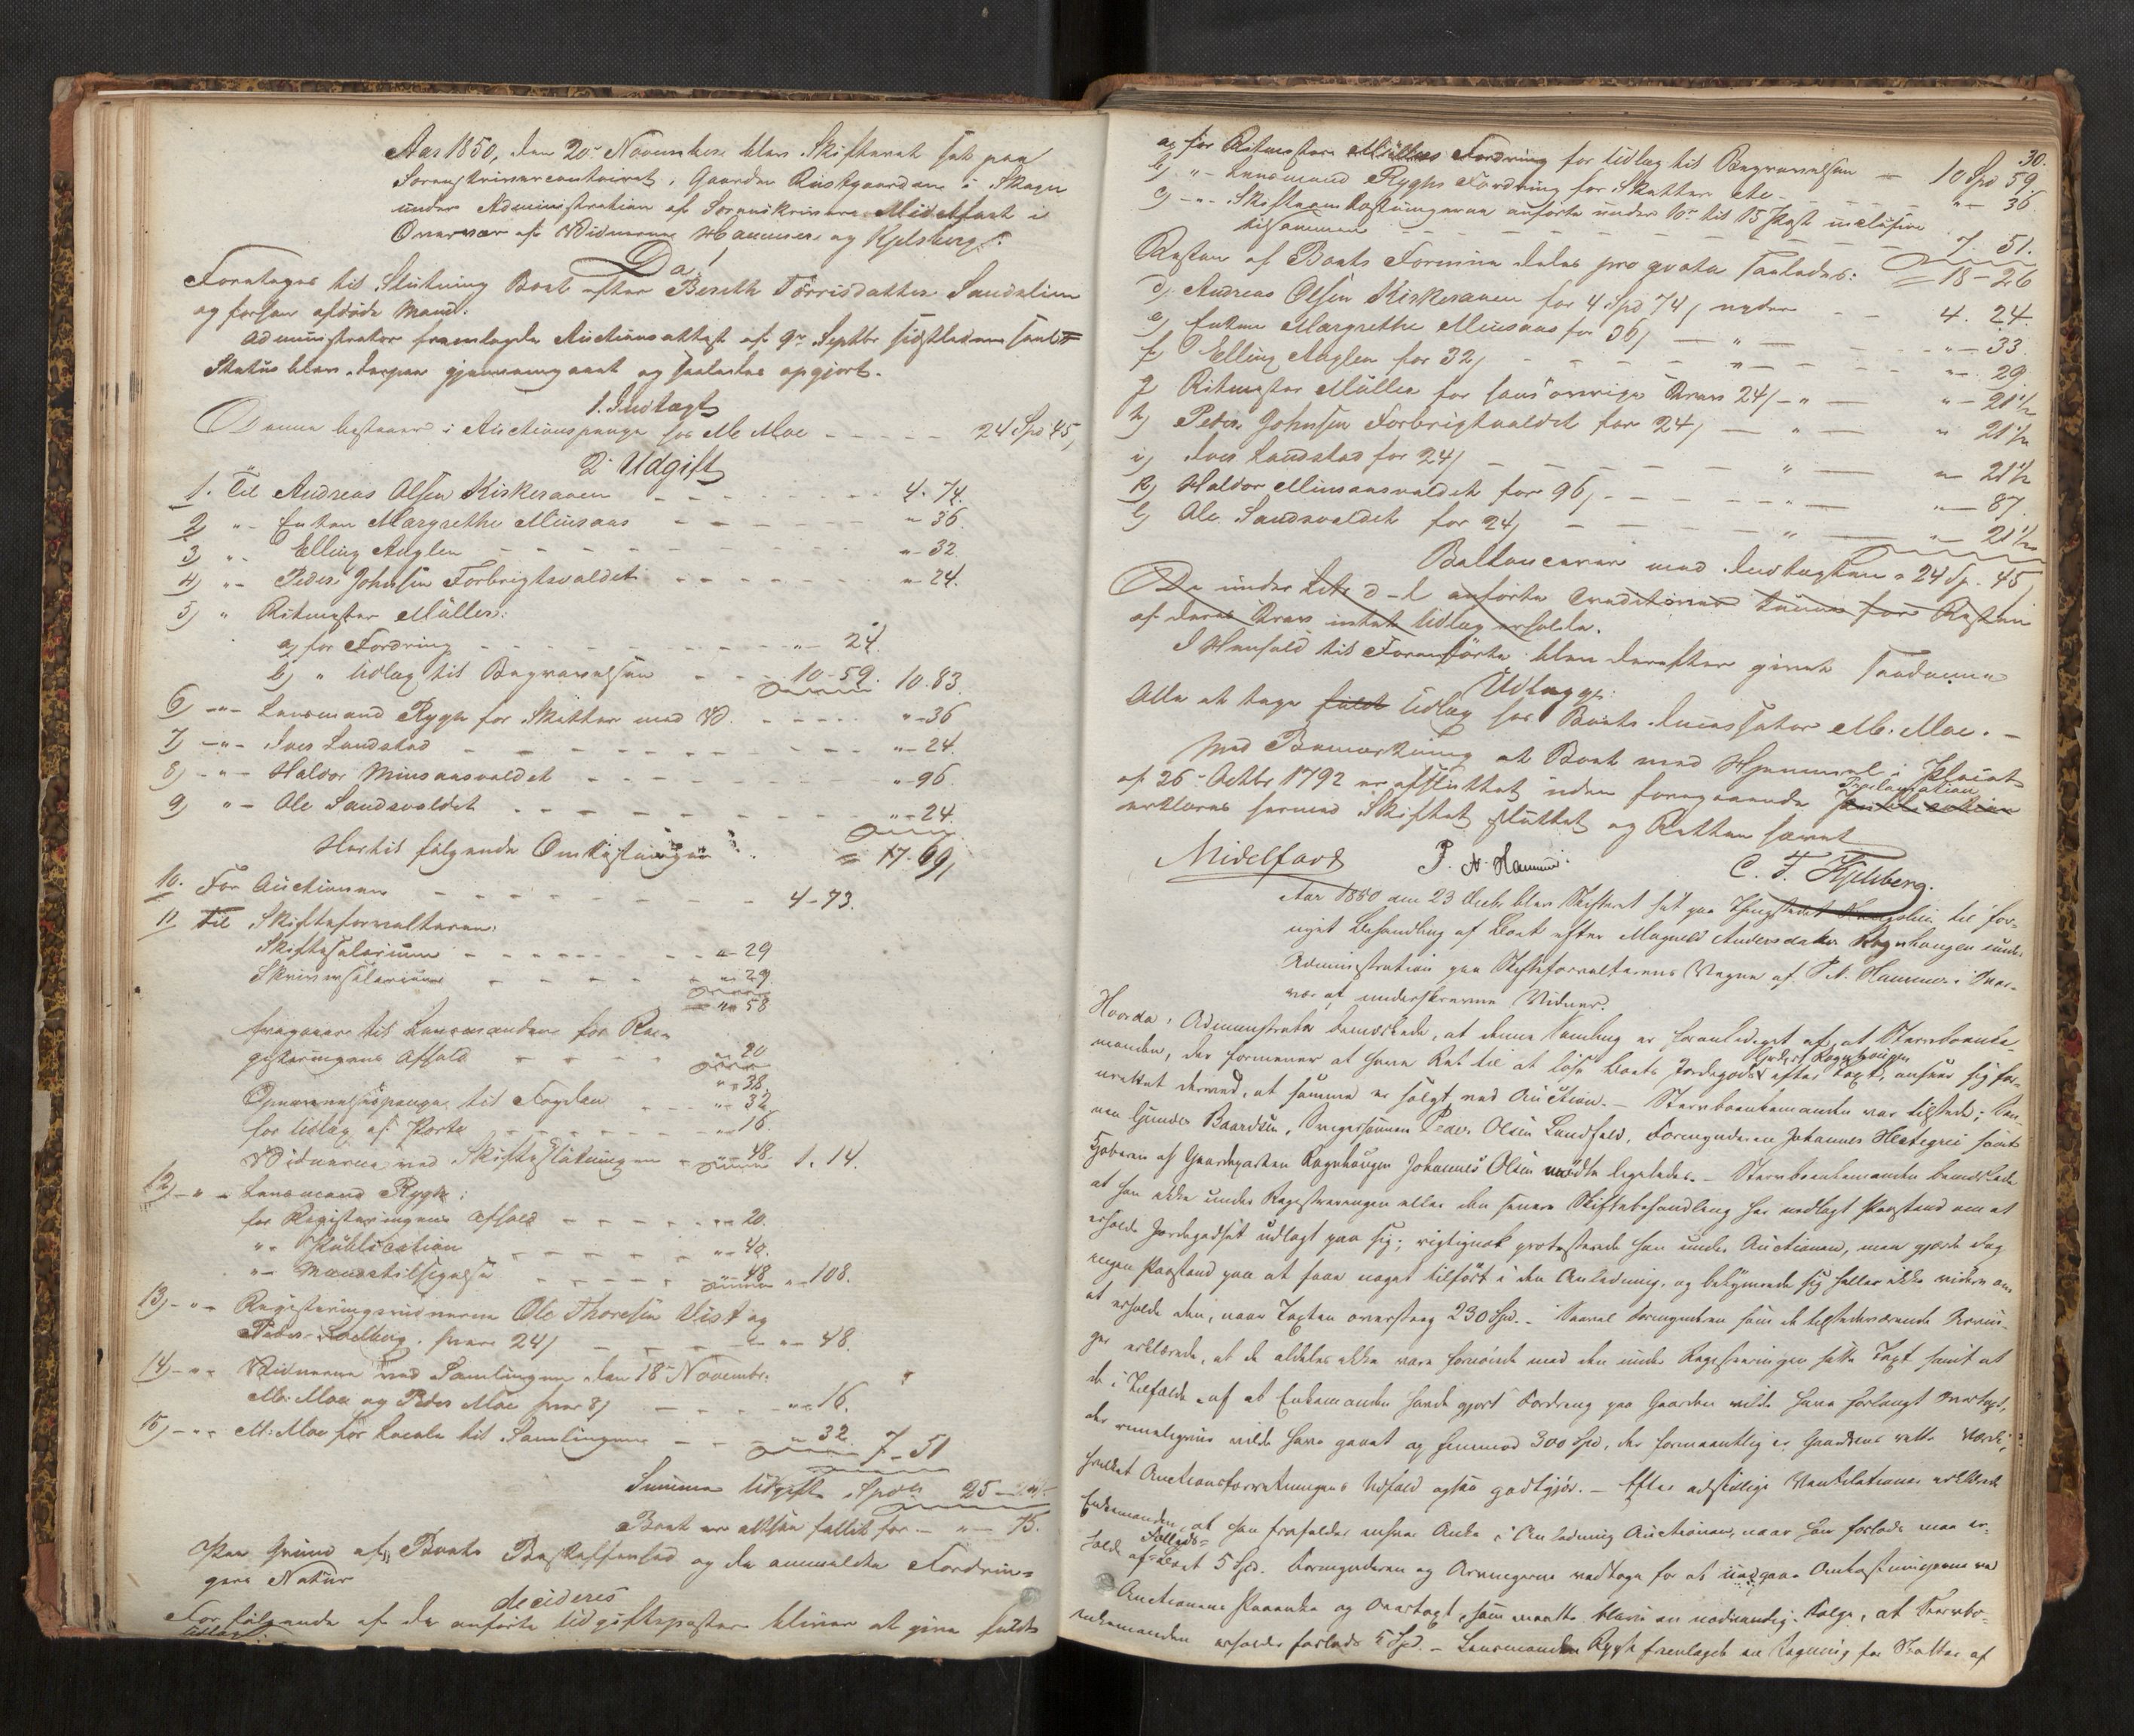 Aar 1850, den 20de November blev Skifteret sat paa
Sorenskrivercontoiret, Gaarden Reistgaarden i Skogn
under Administration af Sorenskriver Midelfart i
Overvær af Vidnerne Hammer og Kjelsberg.
Da!
Foretages til Slutning Boet efter Bereth Torrisdatter Sandslien
og forhen afdøde Mand.
Administrator fremlagde Auctionsattest af 9de Septbr sidstleden samt
Status blev derpaa gjennemgaaet og saaledes opgjort.
1. Indtægt
Denne bestaaer i Auctionspenge hos M. Moe - - - - 24 Spd 45
2. Udgift
1. Til Andreas Olsen Kirkesaaen - - - - 4. 74.
2) "- Enken Margrethe Minsaas - - - - "- 36.
3) "- Elling Auglen - - - - "- 32
4) "- Peder Johnsen Forbrigtsvaldet - - - - "- 24.
5) " Ritmester Müller:
a) for Fordring - - - - "- 24.
b) " Udlæg til Begravelsen - - - 10-59. 10. 83.
6) -"- Lensmand Rygh for Skatter med V. - - - - "-36
7) -"- Iver Landstad - - - - "- 24.
8) -"- Haldor Minsaasvaldet - - - - "- 96.
9) "- Ole Sandsvaldet - - - - "- 24.
Hertil følgende Omkostninger = 17. 69,
10. For Auctionen - - - - 4-73.
11 Til Skifteforvalteren:
Skiftesalarium - - - - "- 29
Skriversalarium - - - - "- 29.
"- 58
fragaaer til Lensmanden for Re-
gisteringens Afhold - - - - "- 20
"- 38.
Opnævnelsespenge til Fogden - - - "- 32
for Udlæg af Porto - - - - "- 16.
Vidnerne ved Skifteslutningen - "- 48. 1. 14.
12) -"- Lensmand Rygh:
for Registeringens Afhold - - - - "- 20.
"- Publication - - - - "- 40.
"- Mandstilsigelse - - - - "- 48 "- 108.
13) -"- Registeringsvidnerne Ole Thoresen Vist og
Peder Solberg, hver 24) - - - - "- 48.
14) -"- Vidnerne ved Samlingen den 18de Novembr.
M. Moe og Peder Moe hver 8) - - - - "- 16.
15) -"- M. Moe for Locale til Samlingerne - - "- 32. 7-51
Summa Udgift Spdlr 25-
Boet er altsaa fallit for - "- 75.
Paa Grund af Boets Beskaffenhed og de anmeldte Fordrin-
gers Natur
decideres
For følgende af de anførte Udgiftsposter bliver at give fuldt
Udlæg
30.
a) for Ritmester Müllers Fordring for Udlæg til Begravelsen - 10 Spd 59.
b) "- Lensmand Ryghs Fordring for Skatter etc. - "- 36
c) -"- Skifteomkostningerne anførte under 10de til 15 Post inclusive
tilsammen - - - - 7. 51.
= 18-26
Resten af Boets Formue deles pro qvota saaledes:
d) Andreas Olsen Kirkesaaen for 4 Spd 74, nyder - - 4. 24.
e) Enken Margrethe Minsaas for 36) - " - "- 33.
f) Elling Auglen for 32) - - - " - - "- 29.
g Ritmester Müller for hans øvrige Krav 24) -"- "- 21½
h) Peder Johnsen Forbrigtvaldet for 24) - " - " 21½
i) Iver Landstad for 24) - - - - " - "- 21½
k) Haldor Minsaasvaldet for 96) - - - " - "- 87.
l) Ole Sandsvaldet for 24) - - - " - "- 21½
Ballancerer med Indtægten = 24 Sp. 45,
De under Litr d-l anførte Creditorer kunne for Resten
af deres Krav intet Udlæg erholde.
I Henhold til Foranførte blev derefter givet saadanne
Udlæg:
Alle at tage fuldt Udlæg hos Boets Incassator M. Moe. -
Med Bemærkning at Boet med Hjemmel i Placat
af 26de Octbr 1792 er afsluttet uden foregaaende Proclamation
erklæres hermed Skiftet sluttet og Retten hævet
Midelfart P. A. Hammer. C. T. Kjelsberg.
Aar 1850 den 23 Decbr blev Skifteret sat paa Thingstedet til for-
nyet Behandling af Boet efter Magnild Andersdatter Rognhaugen under
Administration paa Skifteforvalterens Vegne af P. A. Hammer i Over-
vær af underskrevne Vidner.
Hvorda, Administrator bemærkede, at denne Samling er foranlediget af, at Stervboenke-
manden, der formener at have Ret til at løse Boets Jordegods Gndert Rognhaugen efter Taxt, anseer sig for-
urettet derved, at samme er solgt ved Auction. - Stervboenkemanden var tilstede; Søn-
nen Gunder Baardsen, Svigersønnen Peder Olsen Lundfald, Formynderen Johannes Hestegrei samt
Kjøberen af Gaardparten Rognhaugen Johannes Olsen mødte ligeledes. - Stervboenkemanden bemærkede
at han ikke under Registreringen eller den senere Skiftebehandling har nedlagt Paastand om at
erholde Jordegodset udlagt paa sig; rigtignok protesterede han under Auctionen, men gjorde dog
ingen Paastand paa at faae noget tilført i den Anledning, og bekymrede sig heller ikke videre om
at erholde den, naar Taxten oversteeg 230 Spd. - Saavel Formynderen som de tilstedeværende Arvin-
ger erklærede, at de aldeles ikke vare fornøiede med den under Registreringen satte Taxt samt at
de i Tilfælde af at Enkemanden havde gjort Fordring paa Gaarden vilde have forlangt Overtaxt,
der rimeligviis vilde have gaaet op henimod 300 Spd, der formeentlig er Gaardens rette Værdi,
hvilket Auctionsforretningens Udfald ogsaa godtgjør. - Efter adskillige Ventilationer erklærede
Enkemanden, at han frafalder enhver Anke i Anledning Auctionen, naar han forlods maa er-
holde af Fælleds-Boet 5 Spd. Formynderen og Arvingerne vedtoge for at undgaae Omkostningerne ved
Auctionens Paaanke og Overtaxt, som maatte blive en nødvendig Følge, at Stervbo-
enkemanden erholder forlods 5 Spd. - Lensmanden Rygh fremlagde en Regning for Skatter af